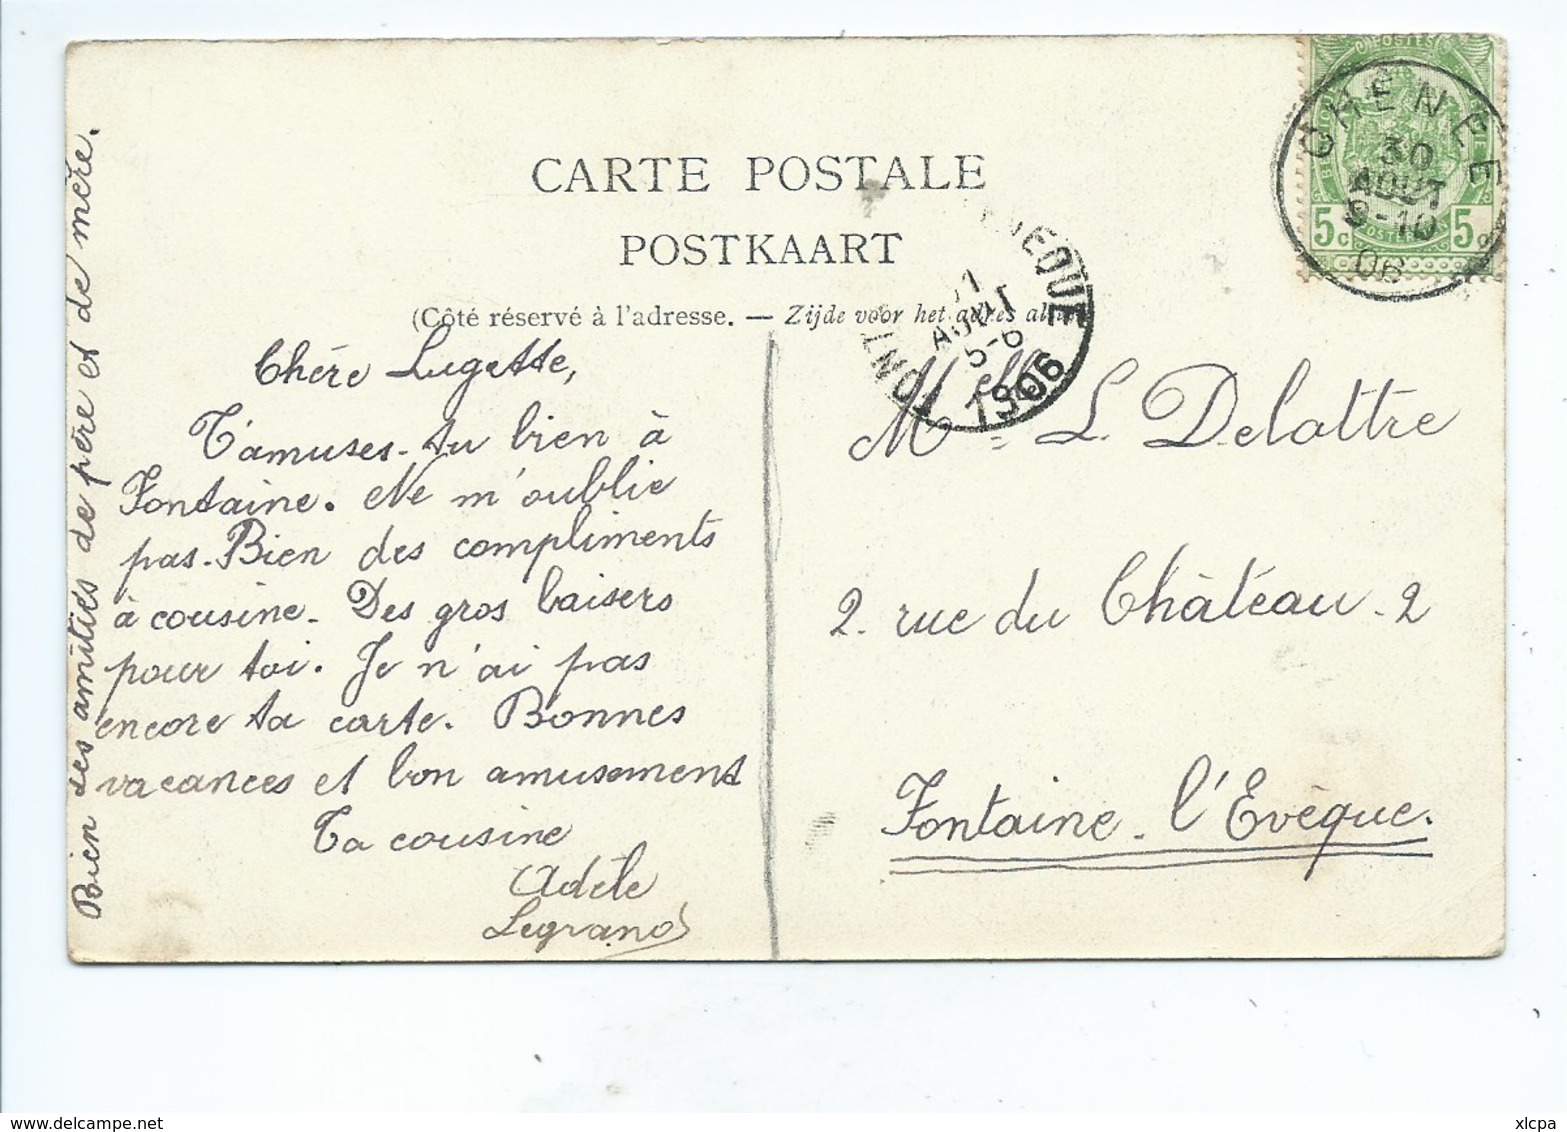 CARTE POSTALE
POSTKAART
(Côté réservé à l'adresse. — Zijde voor het adres
POSTES
5c 5c
CHÊNÉE
30
AOUT
9-10
06
AOUT
5-6
1906
Chère Lugette,
T'amuses-tu bien à
Fontaine. Ne m'oublie
pas. Bien des compliments
à cousine. Des gros baisers
pour toi. Je n'ai pas
encore ta carte. Bonnes
vacances et bon amusement
Ta cousine
Adèle
Legrand
Bien des amitiés de père et de mère.
Melle L. Delattre
2. rue du Château. 2
Fontaine-l'Evèque.
delcampe.net
xlcpa